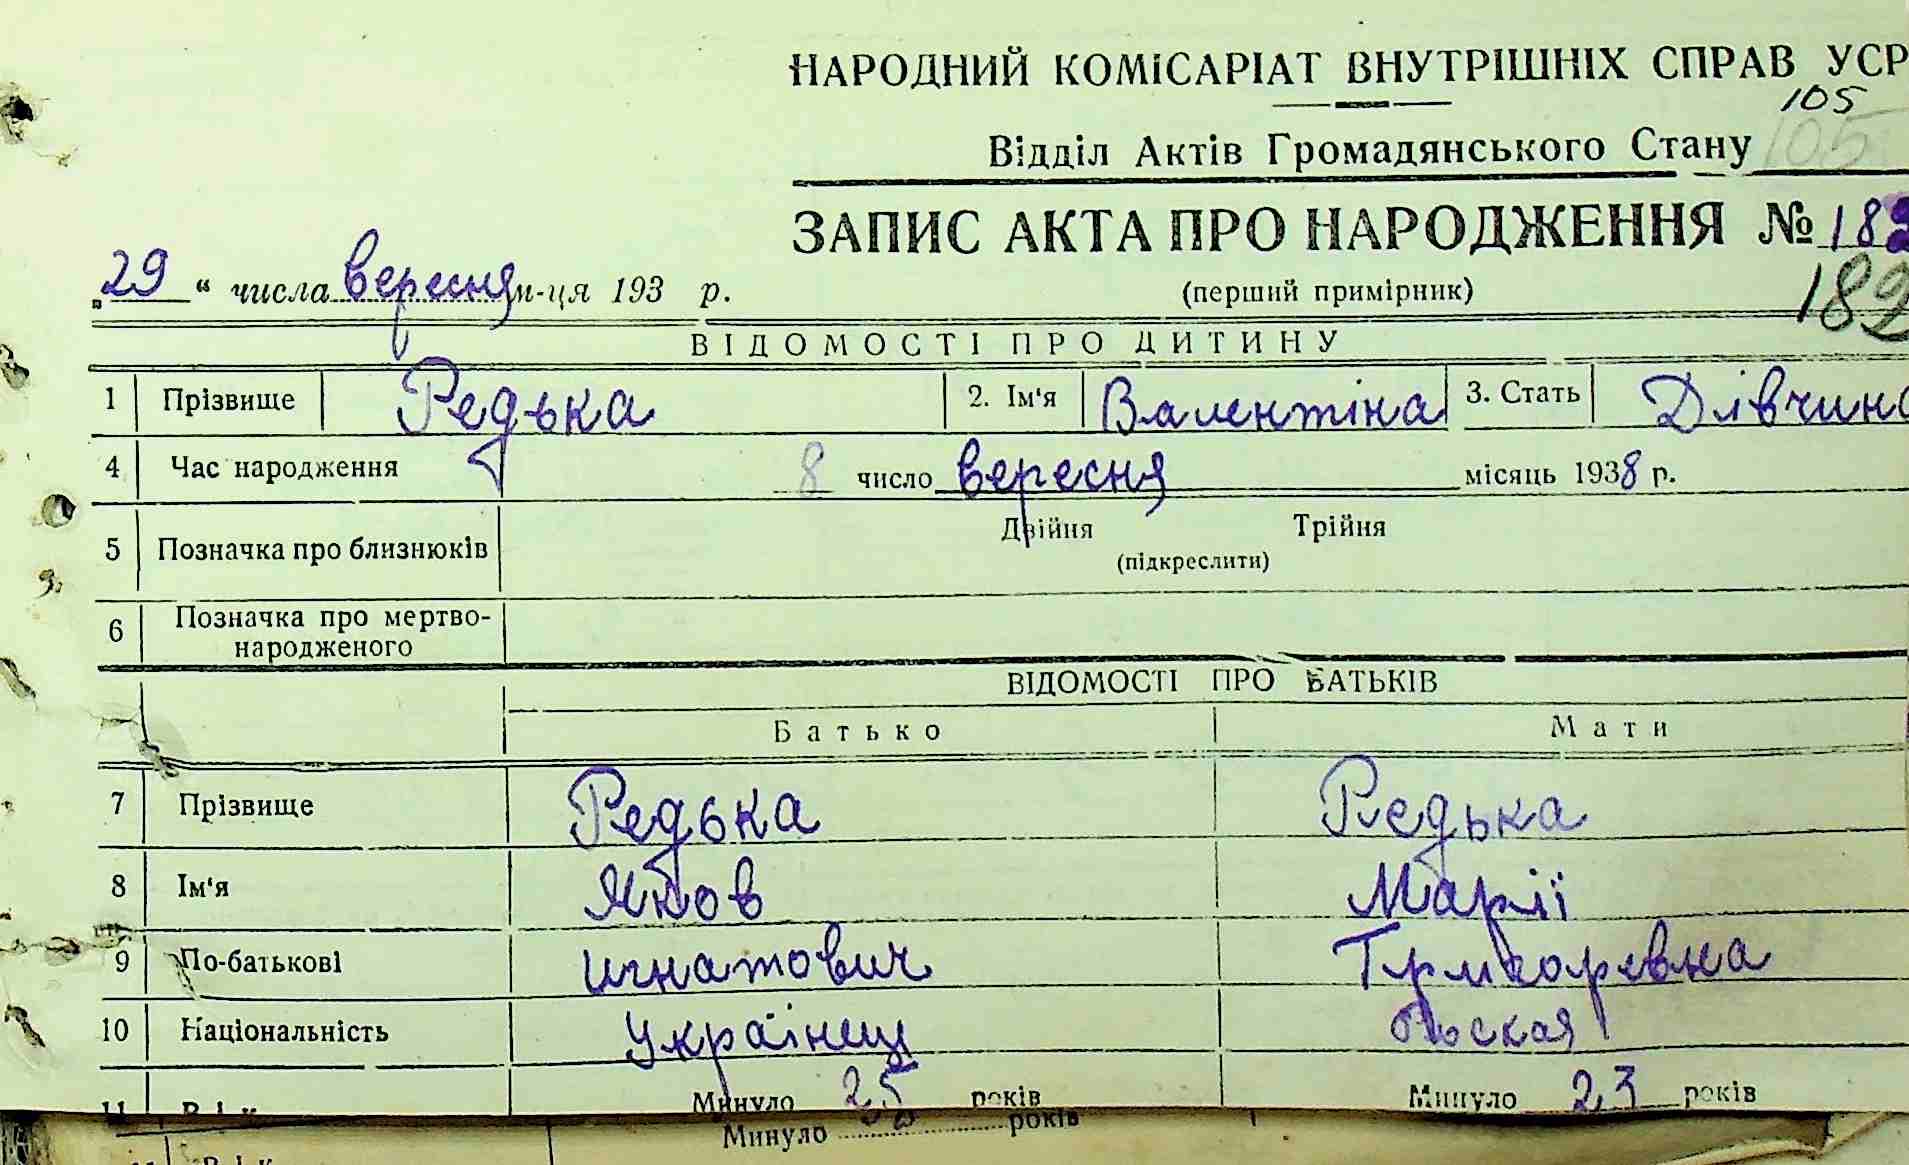 НАРОДНИЙ КОМІСАРІАТ ВНУТРІШНІХ СПРАВ УСР
105
Відділ Актів Громадянського Стану 105
ЗАПИС АКТА ПРО НАРОДЖЕННЯ № 182
„29“ числа вересня м-ця 193 р.
(перший примірник)
182
ВІДОМОСТІ ПРО ДИТИНУ
1 Прізвище Редька 2. Ім'я Валентіна 3. Стать Дівчина
4 Час народження 8 число вересня місяць 1938 р.
5 Позначка про близнюків Двійня Трійня
(підкреслити)
6 Позначка про мертво-
народженого
ВІДОМОСТІ ПРО БАТЬКІВ
Батько Мати
7 Прізвище Редька Редька
8 Ім'я Яков Марії
9 По-батькові игнатович
10 Національність українец
11 Вік Минуло 25 років Минуло 23 років
Минуло років